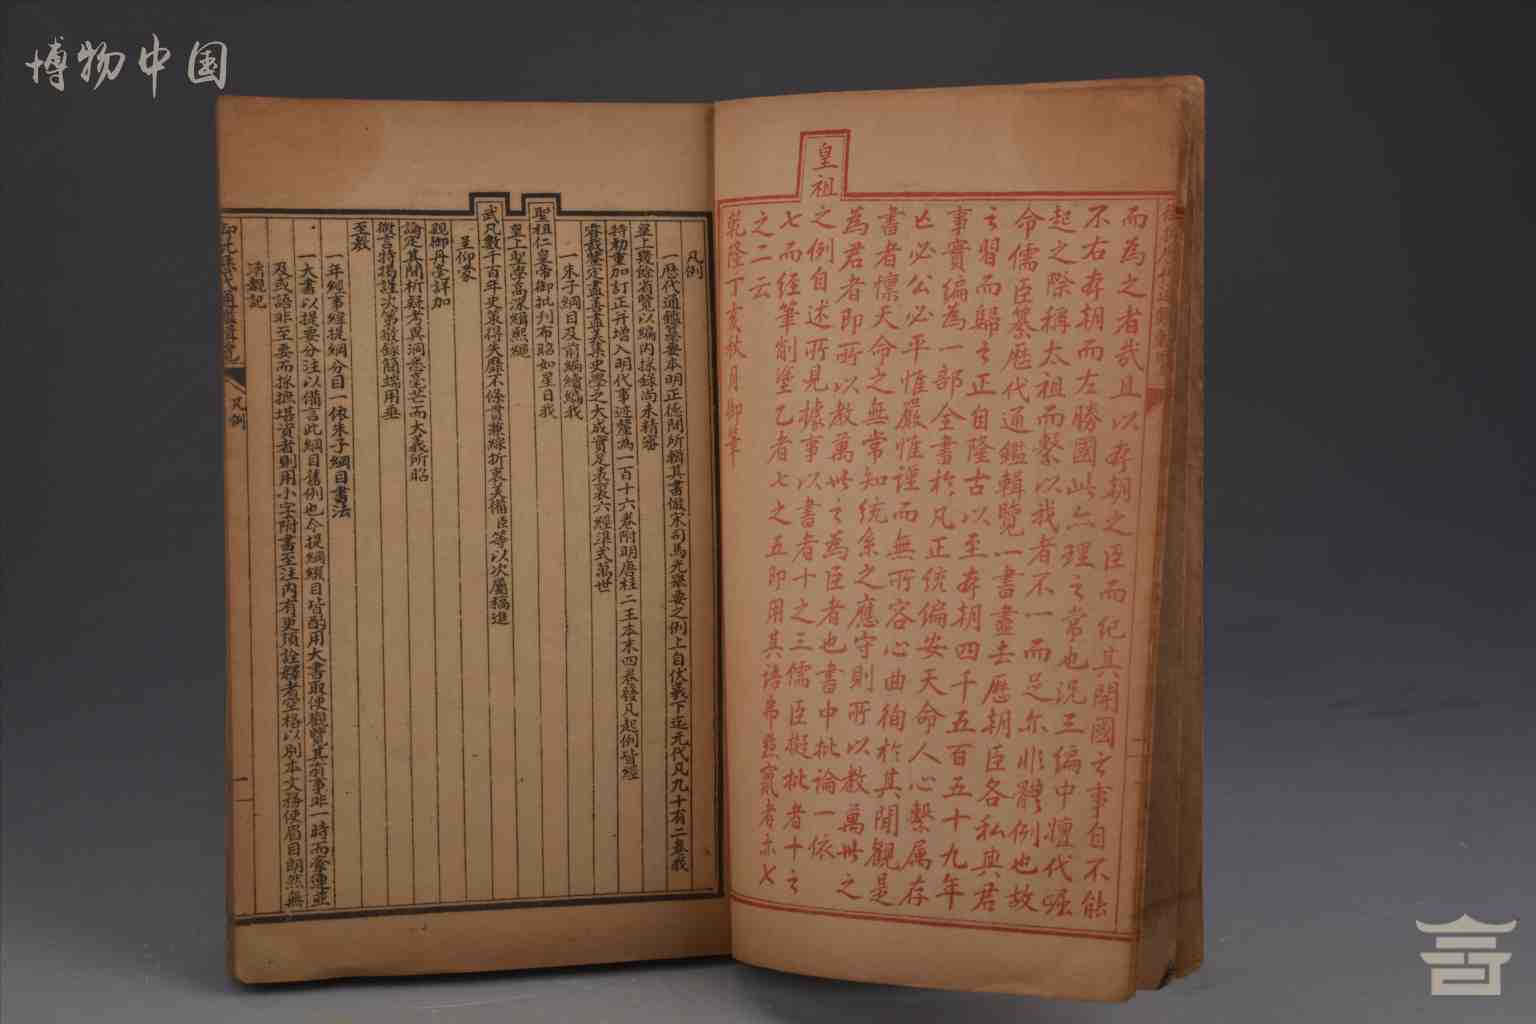 博物中国
皇祖
而為之者哉且以本朝之臣而紀其開國之事自不能
不右本朝而左勝國此亦理之常也況三編中嬗代崛
起之際稱太祖而繫以我者不一而足尔非體例也故
命儒臣纂歷代通鑑輯覽一書盡去歷朝臣各私其君
之習而歸之正自隆古以至本朝四千五百五十九年
事實編為一部全書於凡正統偏安天命人心繫屬存
亡必公必平惟嚴惟謹而無所容心曲徇於其間觀是
書者懍天命之無常知統系之應守則所以教萬世之
為君者即所以教萬世之為臣者也書中批論一依
皇祖
之例自述所見據事以書者十之三儒臣擬批者十之
七而經筆削塗乙者七之五即用其語弗點竄者亦七
之二云
乾隆丁亥秋月御筆
凡例
一歷代通鑑纂要本明正德間所輯其書倣宋司馬光舉要之例上自伏羲下迄元代凡九十有二卷我
皇上幾餘省覽以編內採錄尚未精審
特勅重加訂正并增入明代事迹釐為一百十六卷附明唐桂二王本末四卷發凡起例皆經
睿裁鑒定盡善盡美集史學之大成實足表裏六經準式萬世
一朱子綱目及前編續編我
聖祖仁皇帝御批刊布昭如星日我
皇上聖學高深緝熙繩
武凡數千百年史策得失靡不條貫兼綜折衷美備臣等以次屬稿進
呈仰蒙
親御丹毫詳加
論定其間析疑考異洞悉毫芒而大義所昭
微言特揭謹次第敬錄簡端用垂
至教
一年經事緯提綱分目一依朱子綱目書法
一大書以提要分注以備言此綱目舊例也今提綱綴目皆酌用大書取便觀覽其有事非一時而牽連並
及或語非至要而採摭堪資者則用小字附書至注內有更須詮釋者空格以別本文務便眉目朗然無
凡例